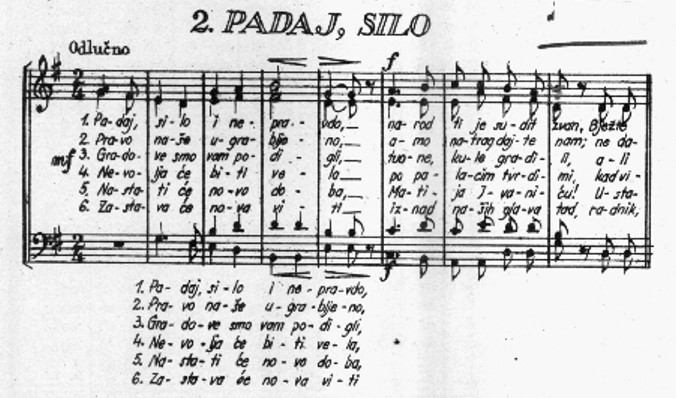 2. PADAJ, SILO
Odlučno
f
1. Pa-daj, si-lo i ne-pra-vdo, na-rod ti je su-dit zvan, Bježte
2. Pravo na-še u-gra-blje-no, a-mo natrag daj-te nam; ne da-
mf 3. Gra-do-ve smo vam po-di-gli, tvo-ne, ku-le gra-di-li, a-li
4. Ne-vo-lja će bi-ti ve-la, po pa-lacim tvr-di-mi, kad vi-
5. Na-sta-ti će no-vo do-ba, Ma-ti-ja I-va-ni-ću! U-sta-
6. Za-sta-va će no-va vi-ti iz-nad na-ših gla-va tad, ra-dnik,
f
1. Pa-daj, si-lo i ne-pra-vdo,
2. Pra-vo na-še u-gra-blje-no,
3. Gra-do-ve smo vam po-di-gli,
4. Ne-vo-lja će bi-ti ve-la,
5. Na-sta-ti će no-vo do-ba,
6. Za-sta-va će no-va vi-ti